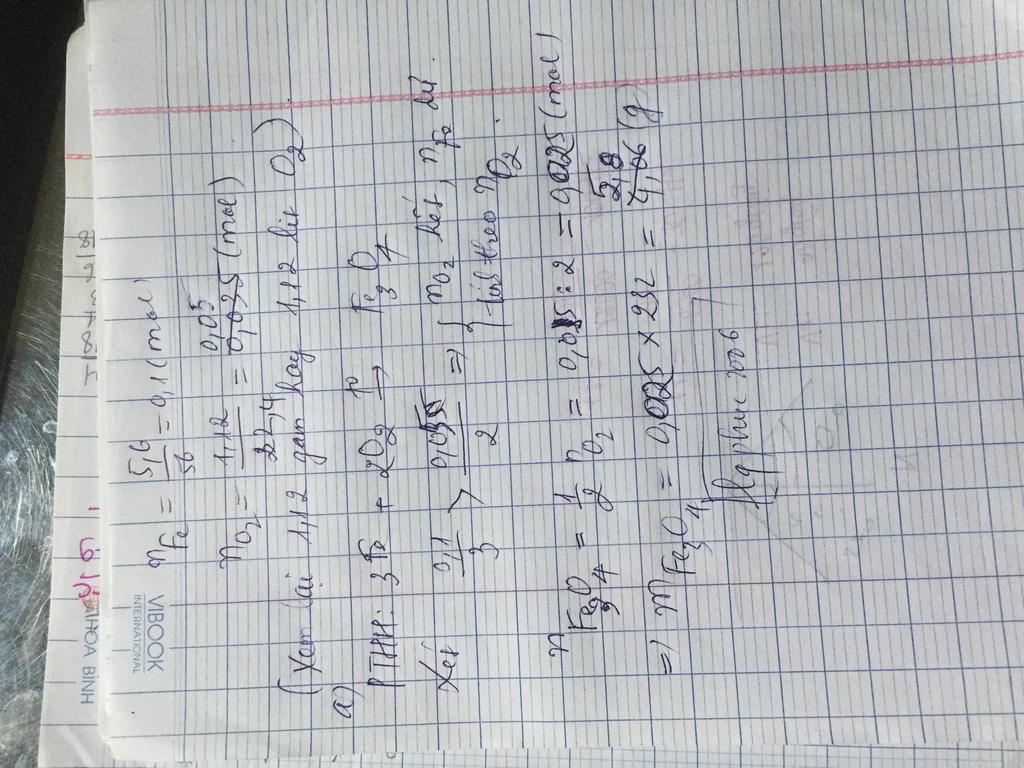 VIBOOK
INTERNATIONAL
HOA BINH
nFe = 5,6/56 = 0,1 (mol)
nO2 = 1,12/22,4 = 0,05 (mol)
(Xem lại 1,12 gam hay 1,12 lít O2)
a)
PTHH: 3Fe + 2O2 to→ Fe3O4
Xét 0,1/3 > 0,05/2 => { nO2 hết, nFe dư.
tính theo nO2.
nFe3O4 = 1/2 nO2 = 0,05 : 2 = 0,025 (mol)
=> mFe3O4 = 0,025 x 232 = 5,8 (g)
phuc 2006